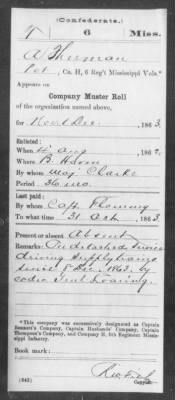 (Confederate.)
6 Miss.
A Thurman
Pvt, Co. H, 6 Reg't Mississippi Vols.*
Appears on
Company Muster Roll
of the organization named above,
for Nov & Dec, 1863.
Enlisted:
When 14 Aug, 1862.
Where
By whom Maj Clarke
Period 36 mo.
Last paid:
By whom Capt
To what time 31 Oct, 1863.
Present or absent Absent
Remarks: On detached service
driving supply train
since 8 Dec 1863. by
order Genl Loring.
*This company was successively designated as Captain
Bennett's Company, Captain Husbands' Company, Captain
Thompson's Company and Company H, 6th Regiment Missis-
sippi Infantry.
Book mark:
(642)
Copyist.